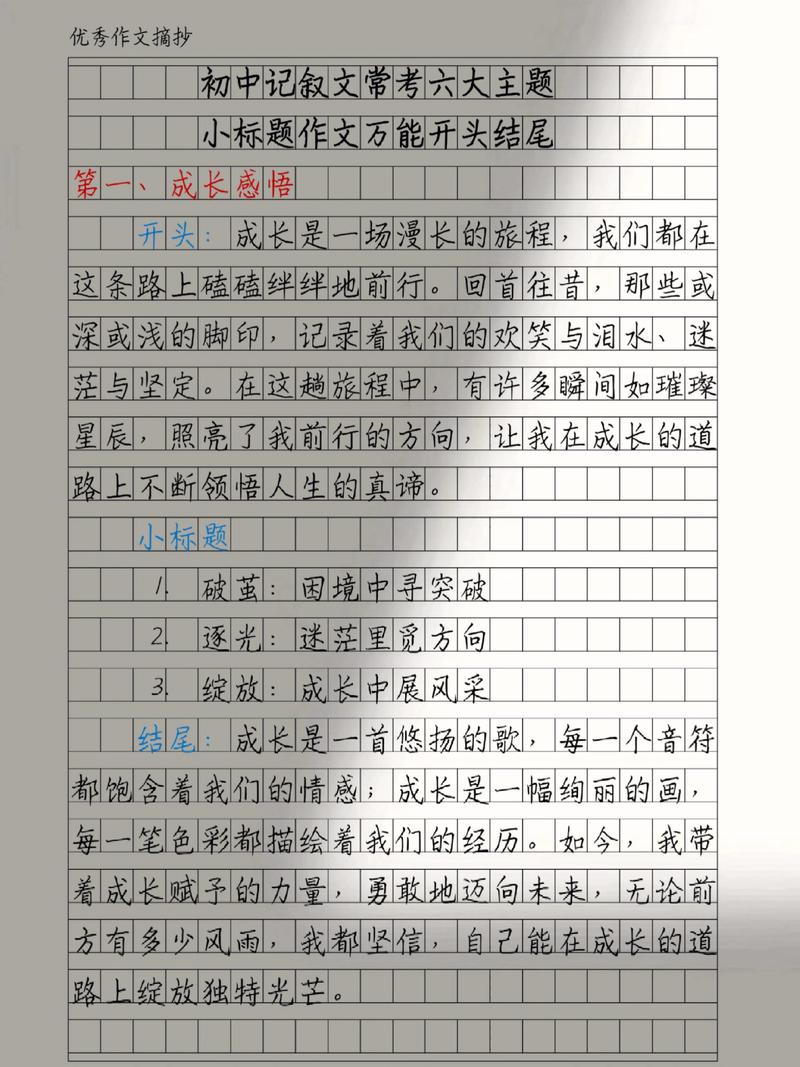 优秀作文摘抄
初中记叙文常考六大主题
小标题作文万能开头结尾
第一、成长感悟
开头：成长是一场漫长的旅程，我们都在
这条路上磕磕绊绊地前行。回首往昔，那些或
深或浅的脚印，记录着我们的欢笑与泪水、迷
茫与坚定。在这趟旅程中，有许多瞬间如璀璨
星辰，照亮了我前行的方向，让我在成长的道
路上不断领悟人生的真谛。
小标题
1. 破茧：困境中寻突破
2. 逐光：迷茫里觅方向
3. 绽放：成长中展风采
结尾：成长是一首悠扬的歌，每一个音符
都饱含着我们的情感；成长是一幅绚丽的画，
每一笔色彩都描绘着我们的经历。如今，我带
着成长赋予的力量，勇敢地迈向未来，无论前
方有多少风雨，我都坚信，自己能在成长的道
路上绽放独特光芒。